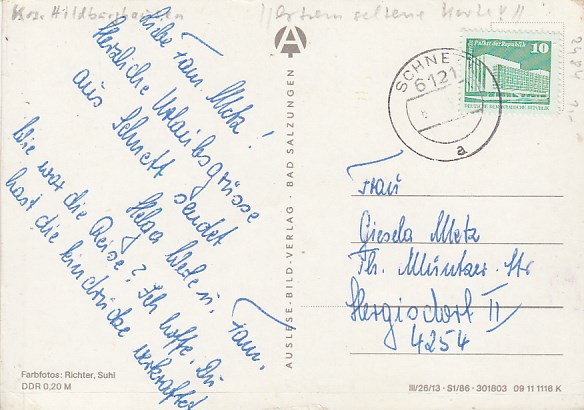 Krs. Hildburghausen
extrem seltene Karte!!
Liebe Fam. Metz!
Herzliche Urlaubsgrüsse
aus Schnett sendet
Helga u. Fam.
Wie war die Reise? Ich hoffe, Du
hast die Eindrücke verkraftet
AUSLESE-BILD-VERLAG · BAD SALZUNGEN
Palast der Republik 10
DEUTSCHE DEMOKRATISCHE REPUBLIK
SCHNE
6121
a
Frau
Giesela Metz
Th. Müntzer-Str
Hergisdorf II
4254
Farbfotos: Richter, Suhl
DDR 0,20 M
III/26/13 · S1/86 · 301803 09 11 1116 K